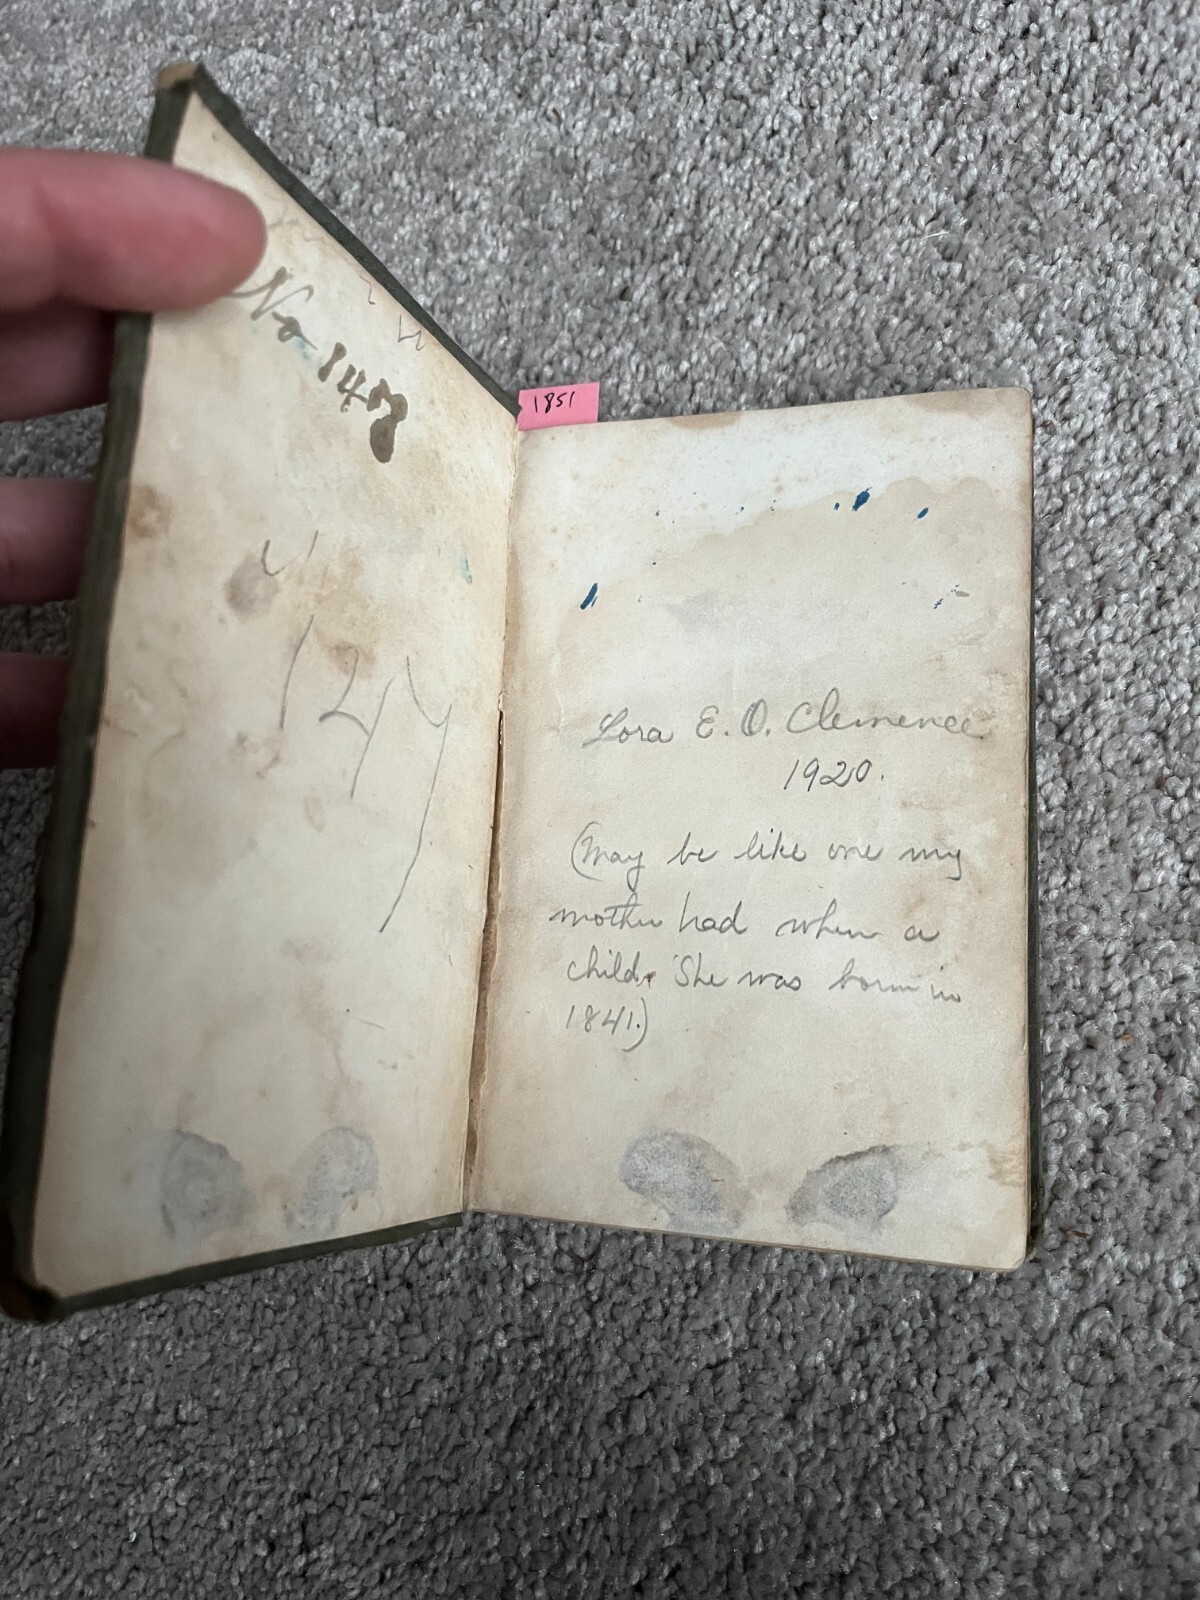 No 147
147
1851
Lora E. O. Clemence
1920.
(May be like one my
mother had when a
child. She was born in
1841.)